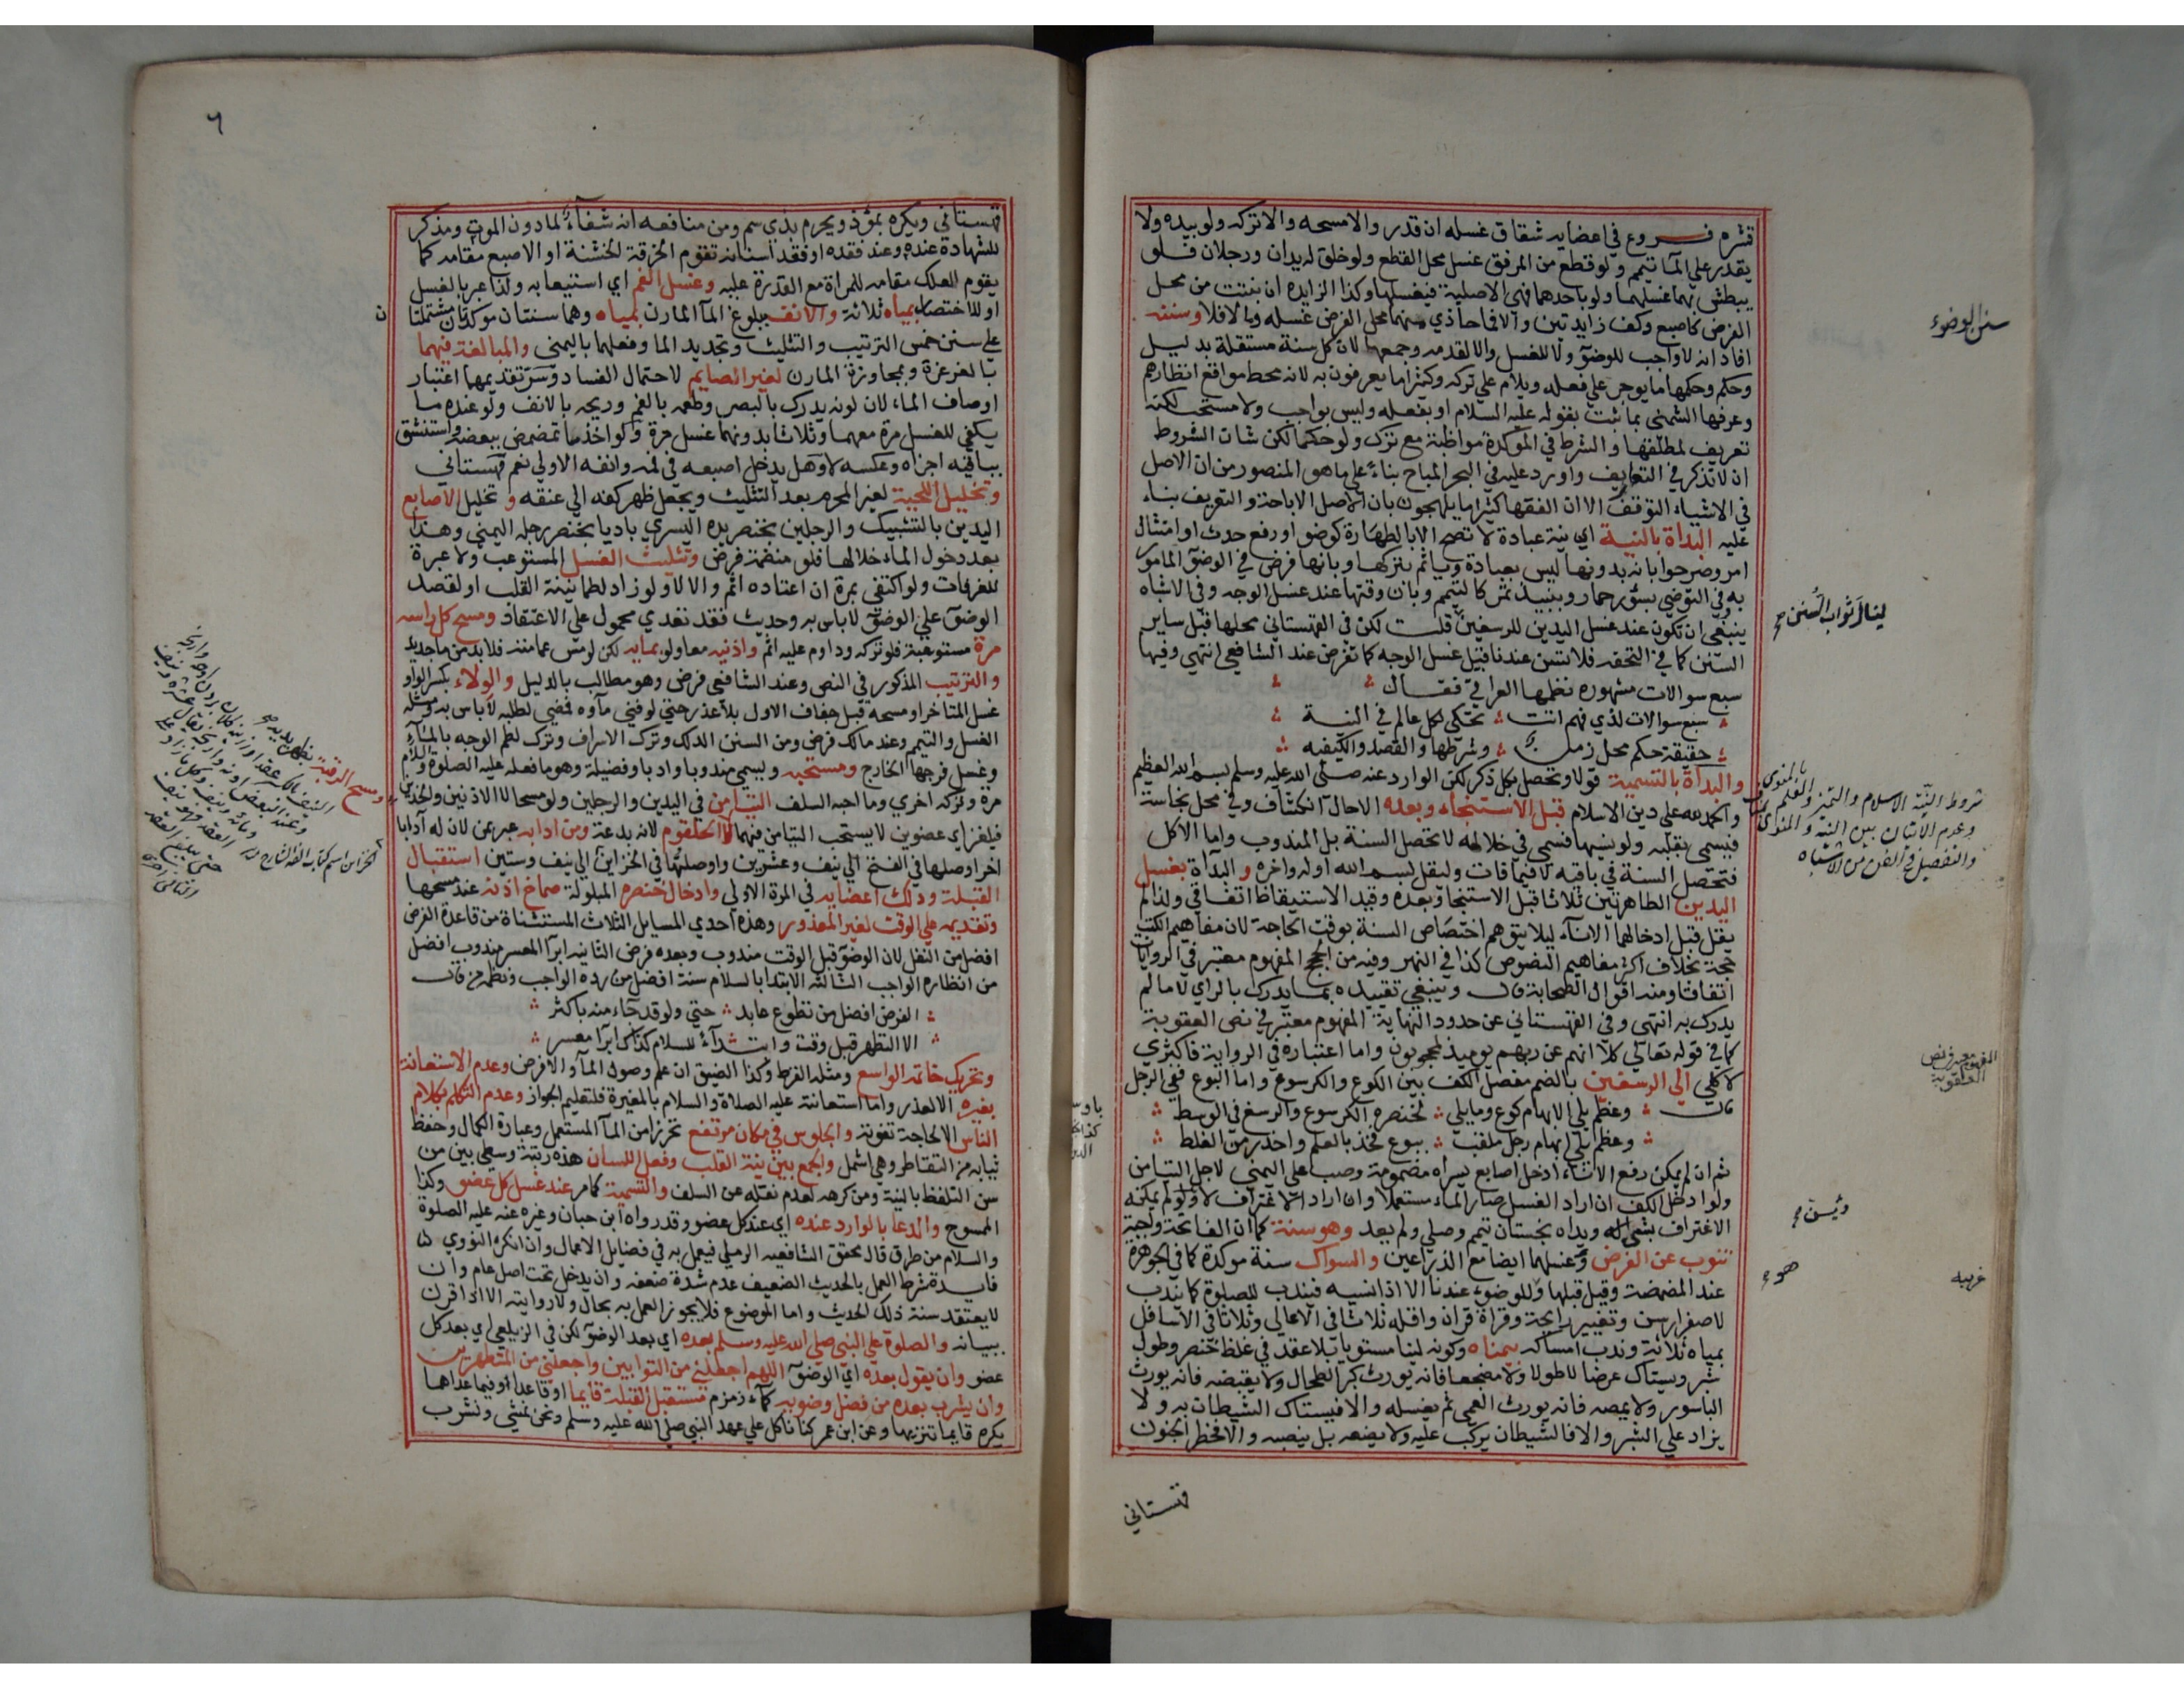 قشره فروع في اعضايه شقاق غسله ان قدر والا مسحه والا تركه ولو بيده ولا
يقدر علي المآ تيمم ولو قطع من المرفق غسل محل القطع ولو خلق له يدان ورجلان فلو
يبطش بهما غسلهما ولو باحدهما فهي الاصلية فيغسلها وكذا الزايده ان نبتت من محل
الفرض كاصبع وكف زايدتين والا فما حاذي منهما محل الفرض غسله وما لا فلا وسننه
افاد انه لا واجب للوضوء ولا للغسل والا لقدمه وجمعها لان كل سنة مستقلة بدليل
وحكم وحكمها ما يوجر علي فعله ويلام علي تركه وكثيرا ما يعرفون به لانه محط مواقع انظارهم
وعرفها الشمني بما ثبت بقوله عليه السلام او بفعله وليس بواجب ولا مستحب لكنه
تعريف لمطلقها والشرط في الموكدة مواظبة مع ترك ولو حكما لكن شان الشروط
ان لا تذكر في التعاريف واورد عليه في البحر المباح بناء علي ما هو المنصور من ان الاصل
في الاشياء التوقف الا ان الفقها كثيرا ما يلهجون بان الاصل الاباحة والتعريف بناء
عليه البداة بالنية اي نية عبادة لا تصح الا بالطهارة كوضو او رفع حدث او امتثال
امر وصرحوا بانه بدونها ليس بعبادة وياثم بتركها وبانها فرض في الوضوء المامور
به وفي التوضي بسؤر حمار ونبيذ تمر كالتيمم وبان وقتها عند غسل الوجه وفي الاشباه
ينبغي ان تكون عند غسل اليدين للرسغين قلت لكن في القهستاني محلها قبل ساير
السنن كما في التحفه فلا تسن عندنا قبيل غسل الوجه كما تفرض عند الشافعي انتهي وفيها
سبع سوالات مشهوره نظمها العراقي فقال
سبع سوالات لذي فهم اتت تحكي لكل عالم في النية
حقيقة حكم محل زمن وشرطها والقصد والكيفيه
والبداة بالتسمية قولا وتحصل بكل ذكر لكن الوارد عنه صلي الله عليه وسلم بسم الله العظيم
والحمد لله علي دين الاسلام قبل الاستنجاء وبعده الا حال انكشاف وفي محل نجاسة
فيسمي بقلبه ولو نسيها فسمي في خلاله لا تحصل السنة بل المندوب واما الاكل
فتحصل السنة في باقيه لا فيما فات وليقل بسم الله اوله واخره والبداة بغسل
اليدين الطاهرتين ثلاثا قبل الاستنجا وبعده وقيد الاستيقاظ اتفاقي ولذا لم
يقل قبل ادخالهما الاناء ليلا يتوهم اختصاص السنة بوقت الحاجة لان مفاهيم الكتب
حجة بخلاف اكثر مفاهيم النصوص كذا في النهر وفيه من الحج المفهوم معتبر في الروايات
اتفاقا ومنه اقوال الصحابة قال وينبغي تقييده بما يدرك بالراي لا ما لم
يدرك به انتهي وفي القهستاني عن حدود النهاية المفهوم معتبر في نص العقوبة
كما في قوله تعالي كلا انهم عن ربهم يوميذ لمحجوبون واما اعتباره في الرواية فاكثري
لا كلي الي الرسغين بالضم مفصل الكف بين الكوع والكرسوع واما البوع ففي الرجل
قال وعظم يلي الابهام كوع وما يلي لخنصره الكرسوع والرسغ في الوسط
وعظم يلي ابهام رجل ملقب ببوع فخذ بالعلم واحذر من الغلط
ثم ان لم يمكن رفع الاناء ادخل اصابع يسراه مضمومة وصب علي اليمني لاجل التيامن
ولو ادخل الكف ان اراد الغسل صار الماء مستعملا وان اراد الاغتراف لا ولو لم يمكنه
الاغتراف بشي له ويداه نجستان تيمم وصلي ولم يعد وهو سنة كما ان الفاتحة واجبة
تنوب عن الفرض وغسلهما ايضا مع الذراعين والسواك سنة موكدة كما في الجوهرة
عند المضمضة وقيل قبلها وللوضوء عندنا الا اذا نسيه فيندب للصلوة كما يندب
لاصفرار سن وتغيير رايحة وقراة قران واقله ثلاث في الاعالي وثلاث في الاسافل
بمياه ثلاثة وندب امساكه بيمناه وكونه لينا مستويا بلا عقد في غلظ خنصر وطول
شبر ويستاك عرضا لا طولا ولا مضجعا فانه يورث كبر الطحال ولا يقبضه فانه يورث
الباسور ولا يمصه فانه يورث العمي ثم يغسله والا فيستاك الشيطان به ولا
يزاد علي الشبر والا فالشيطان يركب عليه ولا يضعه بل ينصبه والا فخطر الجنون
قهستاني
سنن الوضوء
لينال ثواب السنن صح
شروط النية الاسلام والتميز والعلم بالمنوي
وعدم الاتيان بين النية والمنوي بمناف
والتفصيل في الفن من الاشباه
المفهوم معتبر في نص
العقوبة
غريبه
٦
قهستاني ويكره بمؤذ ويحرم بذي سم ومن منافعه انه شفاء لما دون الموت ومذكر
للشهادة عنده وعند فقده او فقد اسنانه تقوم الخرقة الخشنة او الاصبع مقامه كما
يقوم العلك مقامه للمراة مع القدرة عليه وغسل الفم اي استيعابه ولذا عبر بالغسل
او للاختصار بمياه ثلاثة والانف ببلوغ المآ المارن بمياه وهما سنتان موكدتان مشتملتان
علي سنن خمس الترتيب والتثليث وتجديد الما وفعلهما باليمني والمبالغة فيهما
بالغرغرة ومجاوزة المارن لغير الصايم لاحتمال الفساد وسر تقديمهما اعتبار
اوصاف الماء لان لونه يدرك بالبصر وطعمه بالفم وريحه بالانف ولو عنده ما
يكفي للغسل مرة معهما وثلاثا بدونهما غسل مرة ولو اخذ ما تمضمض ببعضه واستنشق
بباقيه اجزاه وعكسه لا وهل يدخل اصبعه في فمه وانفه الاولي نعم قهستاني
وتخليل اللحية لغير المحرم بعد التثليث ويجعل ظهر كفه الي عنقه وتخليل الاصابع
اليدين بالتشبيك والرجلين بخنصر يده اليسري باديا بخنصر رجله اليمني وهذا
بعد دخول الماء خلالها فلو منضمة فرض وتثليث الغسل المستوعب ولا عبرة
للغرفات ولو اكتفي بمرة ان اعتاده اثم والا لا ولو زاد لطمانينة القلب او لقصد
الوضوء علي الوضوء لا باس به وحديث فقد تعدي محمول علي الاعتقاد ومسح كل راسه
مرة مستوعبة فلو تركه وداوم عليه اثم واذنيه معا ولو بمايه لكن لو مس عمامته فلا بد من ما جديد
والترتيب المذكور في النص وعند الشافعي فرض وهو مطالب بالدليل والولاء بكسر الواو
غسل المتاخر او مسحه قبل جفاف الاول بلا عذر حتي لو فني ماوه فمضي لطلبه لا باس به ومثله
الغسل والتيمم وعند مالك فرض ومن السنن الدلك وترك الاسراف وترك لطم الوجه بالمآء
وغسل فرجها الخارج ومستحبه ويسمي مندوبا وادبا وفضيلة وهو ما فعله عليه الصلوة والسلام
مرة وتركه اخري وما احبه السلف التيامن في اليدين والرجلين ولو مسحا لا الاذنين والخدين
فيلغز اي عضوين لا يستحب التيامن فيهما لا الحلقوم لانه بدعة ومن ادابه عبر عن لان له آدابا
اخر اوصلها في الفتح الي نيف وعشرين واوصلتها في الخزاين الي نيف وستين استقبال
القبلة ودلك اعضايه في المرة الاولي وادخال خنصره المبلولة صماخ اذنه عند مسحها
وتقديمه علي الوقت لغير المعذور وهذه احدي المسايل الثلاث المستثناة من قاعدة الفرض
افضل من النفل لان الوضوء قبل الوقت مندوب وبعده فرض الثانيه ابرآ المعسر مندوب افضل
من انظاره الواجب الثالثه الابتدا بالسلام سنة افضل من رده الواجب ونظمه من قال
الفرض افضل من تطوع عابد حتي ولو قد جآء منه باكثر
الا التطهر قبل وقت وابتدآء للسلام كذاك ابرآ معسر
وتحريك خاتمه الواسع ومثله القرط وكذا الضيق ان علم وصول المآ والا فرض وعدم الاستعانة
بغيره الا لعذر واما استعانته عليه الصلاة والسلام بالمغيرة فلتعليم الجواز وعدم التكلم بكلام
الناس الا لحاجة تفوته والجلوس في مكان مرتفع تحرزا من المآ المستعمل وعبارة الكمال وحفظ
ثيابه من التقاطر وهي اشمل والجمع بين نية القلب وفعل اللسان هذه رتبة وسطي بين من
سن التلفظ بالنية ومن كرهه لعدم نقله عن السلف والتسمية كما مر عند غسل كل عضو وكذا
الممسوح والدعا بالوارد عنده اي عند كل عضو وقد رواه ابن حبان وغيره عنه عليه الصلوة
والسلام من طرق قال محقق الشافعيه الرملي فيعمل به في فضايل الاعمال وان انكره النووي
فايدة شرط العمل بالحديث الضعيف عدم شدة ضعفه وان يدخل تحت اصل عام وان
لا يعتقد سنة ذلك الحديث واما الموضوع فلا يجوز العمل به بحال ولا روايته الا اذا قرن
ببيانه والصلوة علي النبي صلي الله عليه وسلم بعده اي بعد الوضوء لكن في الزيلعي اي بعد كل
عضو وان يقول بعده اي الوضوء اللهم اجعلني من التوابين واجعلني من المتطهرين
وان يشرب بعده من فضل وضويه كمآء زمزم مستقبل القبلة قايما او قاعدا وفيما عداهما
يكره قايما تنزيها وعن ابن عمر كنا ناكل علي عهد النبي صلي الله عليه وسلم ونحن نمشي ونشرب
ومسح الرقبة بظهر يديه صح